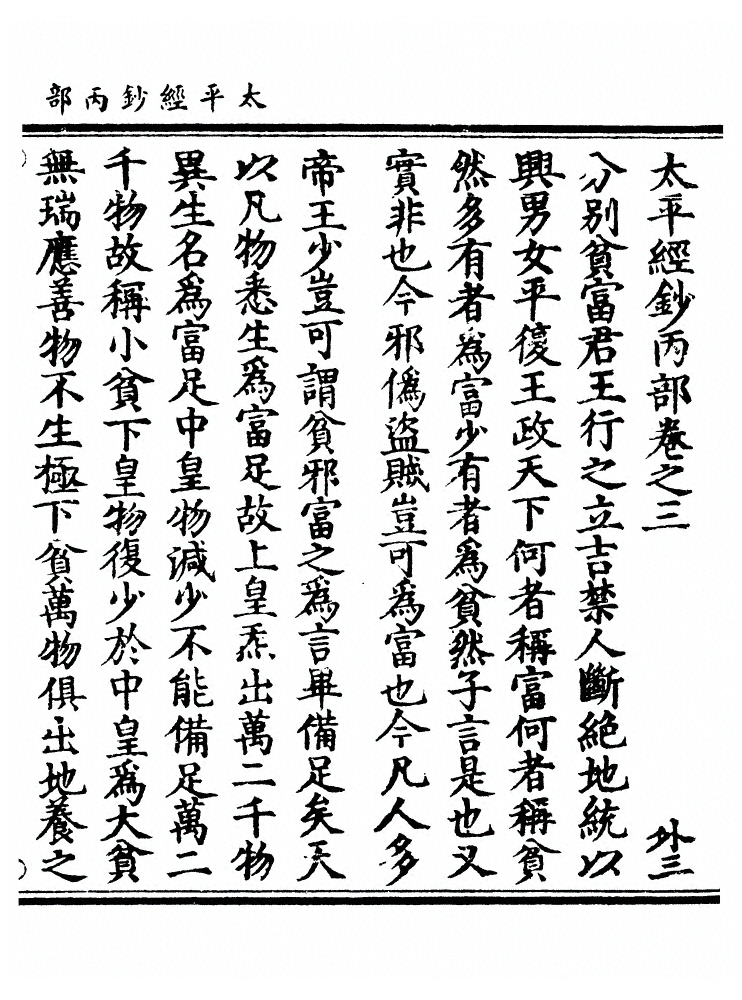 太平經鈔丙部
太平經鈔丙部卷之三 外三
分别貧富君王行之立吉禁人斷絕地統以
興男女平復王政天下何者稱富何者稱貧
然多有者為富少有者為貧然子言是也又
實非也今邪偽盜賊豈可為富也今凡人多
帝王少豈可謂貧邪富之為言畢備足矣天
以凡物悉生為富足故上皇炁出萬二千物
異生名為富足中皇物減少不能備足萬二
千物故稱小貧下皇物復少於中皇為大貧
無瑞應善物不生極下貧萬物俱出地養之